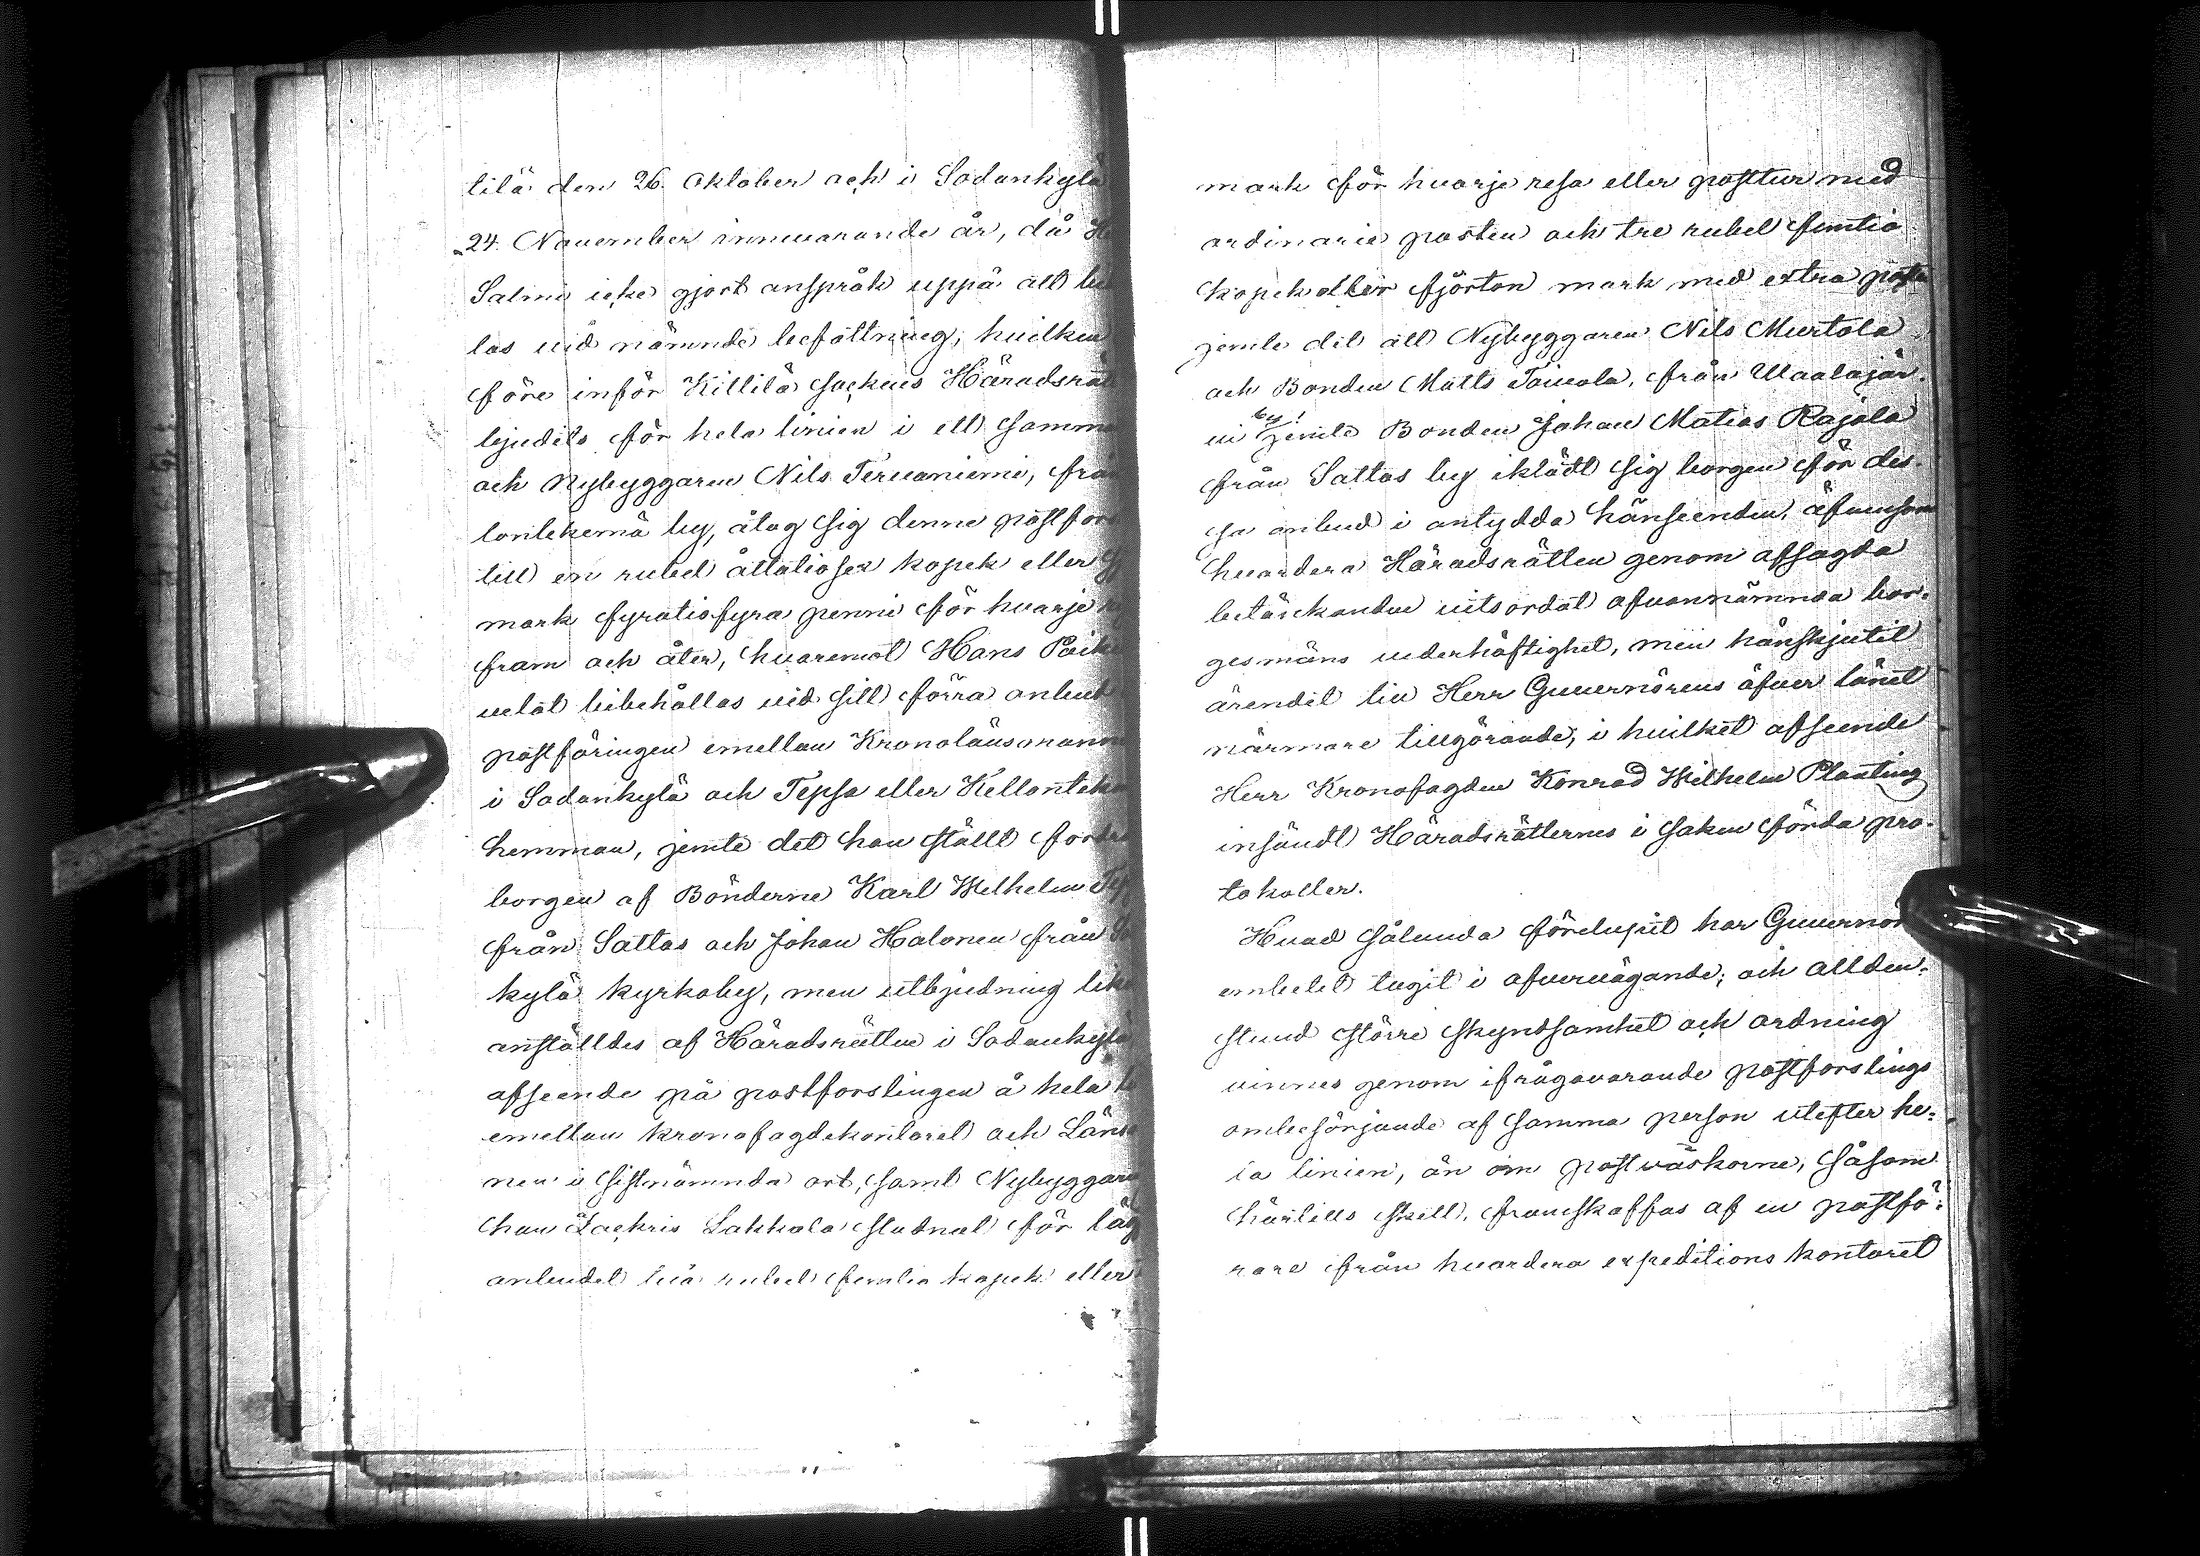 tilä den 26. Oktober och i Sodankylä
24. November innevarande år, då
Salmi icke gjort anspråk uppå att
las vid nämnde befattning, hvilken
före inför Kittilä Sockens Häradsrät
bjudits för hela linien i ett samma
och Nybyggaren Nils Tervaniemi, från
lontekemä by, åtog sig denne postfor
till en rubel åttatiosex kopek eller
mark fyratiofyra penni för hvarje
fram och åter, hvaremot Hans Poik
velat bibehållas vid sitt förra anbud
postföringen emellan Kronolänsmann
i Sodankylä och Tepsa eller Kellontek
hemman, jemte det han ställt
borgen af Bönderne Karl Wilhelm
från Sattas och Johan Halonen från
kylä kyrkoby, men utbjudning
anställdes af Häradsrätten i Sodankylä
afseende på postforslingen å hela
emellan kronofogdekontoret och Läns
nen i sistnämnda ort, samt Nybyggare
han Zachris Lakkala stadnat för läg
anbudet två rubel femtio kopek eller
mark för hvarje resa eller posttur med
ordinarie posten och tre rubel femtio
kopek eller fjorton mark med extra post
jemte det att Nybyggaren Nils Murtola
och Bonden Matts Toivola, från Waalajär-
vi by jemte Bonden Johan Matias Rajala
från Sattas by iklädt sig borgen för des-
sa anbud i antydda hänseenden, äfvensom
hvardera Häradsrätten genom afsagda
betänkanden vitsordat ofvannämnda bor-
gesmäns vederhäftighet, men hänskjutit
ärendet till Herr Guvernörens öfver länet
närmare tillgörande, i hvilket afseende
Herr Kronofogden Konrad Wilhelm Planting
insändt Häradsrätternes i saken förda pro-
tokoller.
Hvad sålunda förelupit har Guvernörs
embetet tagit i öfvervägande; och alldén-
stund större skyndsamhet och ordning
vinnes genom ifrågavarande postforslings
ombesörjande af samma person utefter he-
la linien, än om postväskorne, såsom
härtills skett, framskaffas af en postfö-
rare från hvardera expeditions kontoret